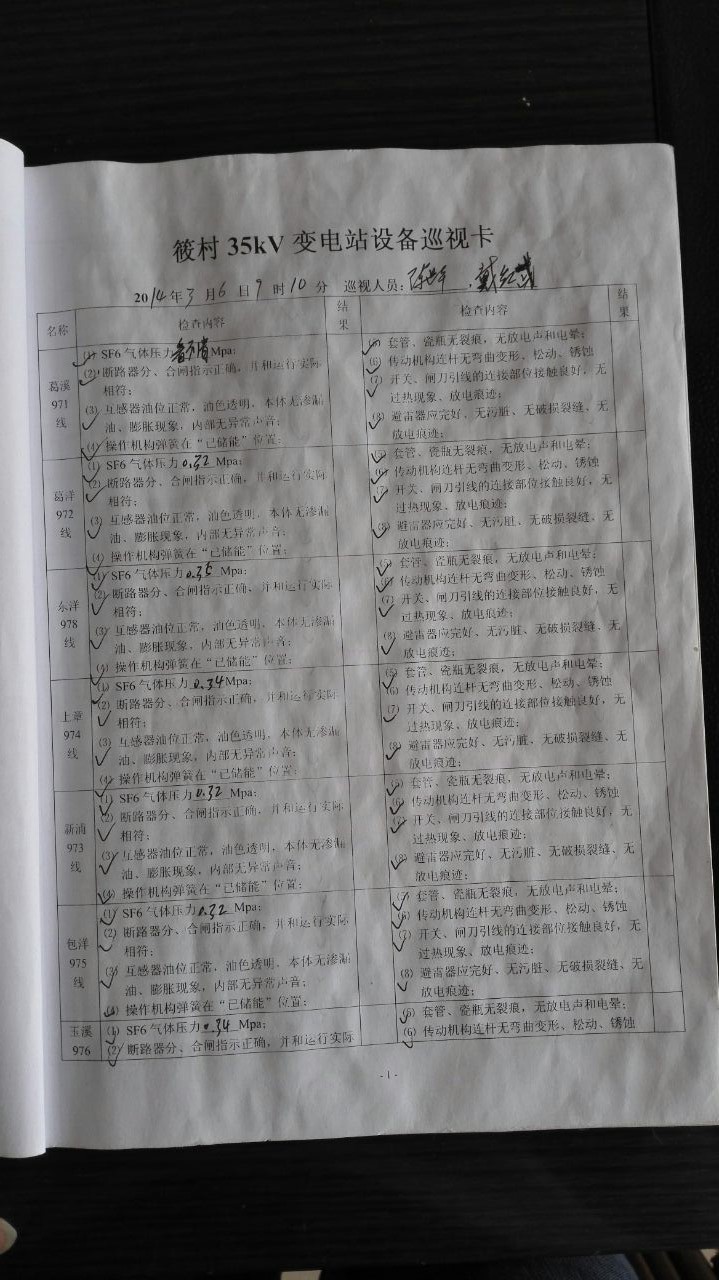 筱村 35kV 变电站设备巡视卡
2014年3月6日9时10分 巡视人员：
名称 检查内容 结果 检查内容 结果
葛溪 971 线
(1) SF6 气体压力 看不清 Mpa;
(2) 断路器分、合闸指示正确，并和运行实际
相符;
(3) 互感器油位正常，油色透明，本体无渗漏
油、膨胀现象，内部无异常声音;
(4) 操作机构弹簧在“已储能”位置;
(5) 套管、瓷瓶无裂痕，无放电声和电晕;
(6) 传动机构连杆无弯曲变形、松动、锈蚀
(7) 开关、闸刀引线的连接部位接触良好，无
过热现象、放电痕迹;
(8) 避雷器应完好、无污脏、无破损裂缝、无
放电痕迹;
葛洋 972 线
(1) SF6 气体压力 0.32 Mpa;
(2) 断路器分、合闸指示正确，并和运行实际
相符;
(3) 互感器油位正常，油色透明，本体无渗漏
油、膨胀现象，内部无异常声音;
(4) 操作机构弹簧在“已储能”位置;
(5) 套管、瓷瓶无裂痕，无放电声和电晕;
(6) 传动机构连杆无弯曲变形、松动、锈蚀
(7) 开关、闸刀引线的连接部位接触良好，无
过热现象、放电痕迹;
(8) 避雷器应完好、无污脏，无破损裂缝、无
放电痕迹;
东洋 978 线
(1) SF6 气体压力 0.35 Mpa;
(2) 断路器分、合闸指示正确，并和运行实际
相符;
(3) 互感器油位正常，油色透明，本体无渗漏
油、膨胀现象，内部无异常声音;
(4) 操作机构弹簧在“已储能”位置;
(5) 套管、瓷瓶无裂痕，无放电声和电晕;
(6) 传动机构连杆无弯曲变形、松动、锈蚀
(7) 开关、闸刀引线的连接部位接触良好，无
过热现象、放电痕迹;
(8) 避雷器应完好、无污脏、无破损裂缝、无
放电痕迹;
上章 974 线
(1) SF6 气体压力 0.34 Mpa;
(2) 断路器分、合闸指示正确，并和运行实际
相符;
(3) 互感器油位正常，油色透明，本体无渗漏
油、膨胀现象，内部无异常声音;
(4) 操作机构弹簧在“已储能”位置;
(5) 套管、瓷瓶无裂痕，无放电声和电晕;
(6) 传动机构连杆无弯曲变形、松动、锈蚀
(7) 开关、闸刀引线的连接部位接触良好，无
过热现象、放电痕迹;
(8) 避雷器应完好、无污脏、无破损裂缝、无
放电痕迹;
新浦 973 线
(1) SF6 气体压力 0.32 Mpa;
(2) 断路器分、合闸指示正确，并和运行实际
相符;
(3) 互感器油位正常，油色透明，本体无渗漏
油、膨胀现象，内部无异常声音;
(4) 操作机构弹簧在“已储能”位置;
(5) 套管、瓷瓶无裂痕，无放电声和电晕;
(6) 传动机构连杆无弯曲变形、松动、锈蚀
(7) 开关、闸刀引线的连接部位接触良好，无
过热现象、放电痕迹;
(8) 避雷器应完好、无污脏、无破损裂缝、无
放电痕迹;
包洋 975 线
(1) SF6 气体压力 0.32 Mpa;
(2) 断路器分、合闸指示正确，并和运行实际
相符;
(3) 互感器油位正常，油色透明、本体无渗漏
油、膨胀现象，内部无异常声音;
(4) 操作机构弹簧在“已储能”位置;
(5) 套管、瓷瓶无裂痕，无放电声和电晕;
(6) 传动机构连杆无弯曲变形、松动、锈蚀
(7) 开关、闸刀引线的连接部位接触良好，无
过热现象、放电痕迹;
(8) 避雷器应完好、无污脏、无破损裂缝、无
放电痕迹;
玉溪 976
(1) SF6 气体压力 0.34 Mpa;
(2) 断路器分、合闸指示正确，并和运行实际
(5) 套管、瓷瓶无裂痕，无放电声和电晕;
(6) 传动机构连杆无弯曲变形、松动、锈蚀
- 1 -